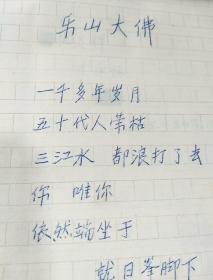 乐山大佛
一千多年岁月
五十代人荣枯
三江水 都浪打了去
你 唯你
依然端坐于
就日峯脚下